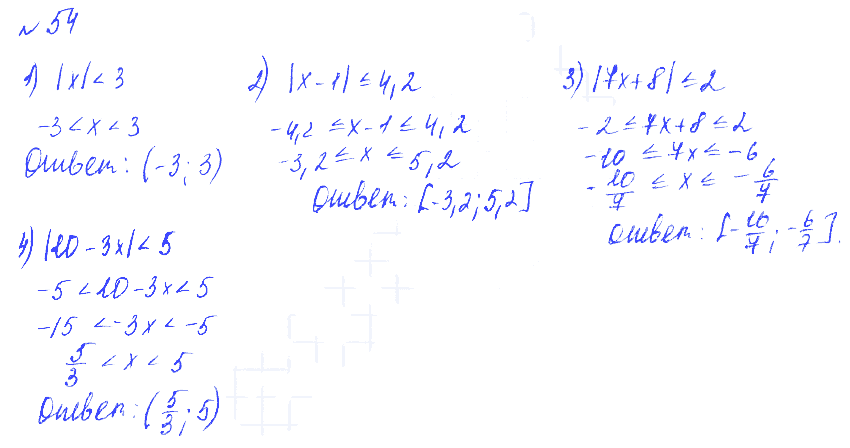 № 54
1) |x| < 3
-3 < x < 3
Ответ: (-3; 3)
2) |x-1| ≤ 4,2
-4,2 ≤ x-1 ≤ 4,2
-3,2 ≤ x ≤ 5,2
Ответ: [-3,2; 5,2]
3) |7x+8| ≤ 2
-2 ≤ 7x+8 ≤ 2
-10 ≤ 7x ≤ -6
-10/7 ≤ x ≤ -6/7
Ответ: [-10/7; -6/7].
4) |10-3x| < 5
-5 < 10-3x < 5
-15 < -3x < -5
5/3 < x < 5
Ответ: (5/3; 5)